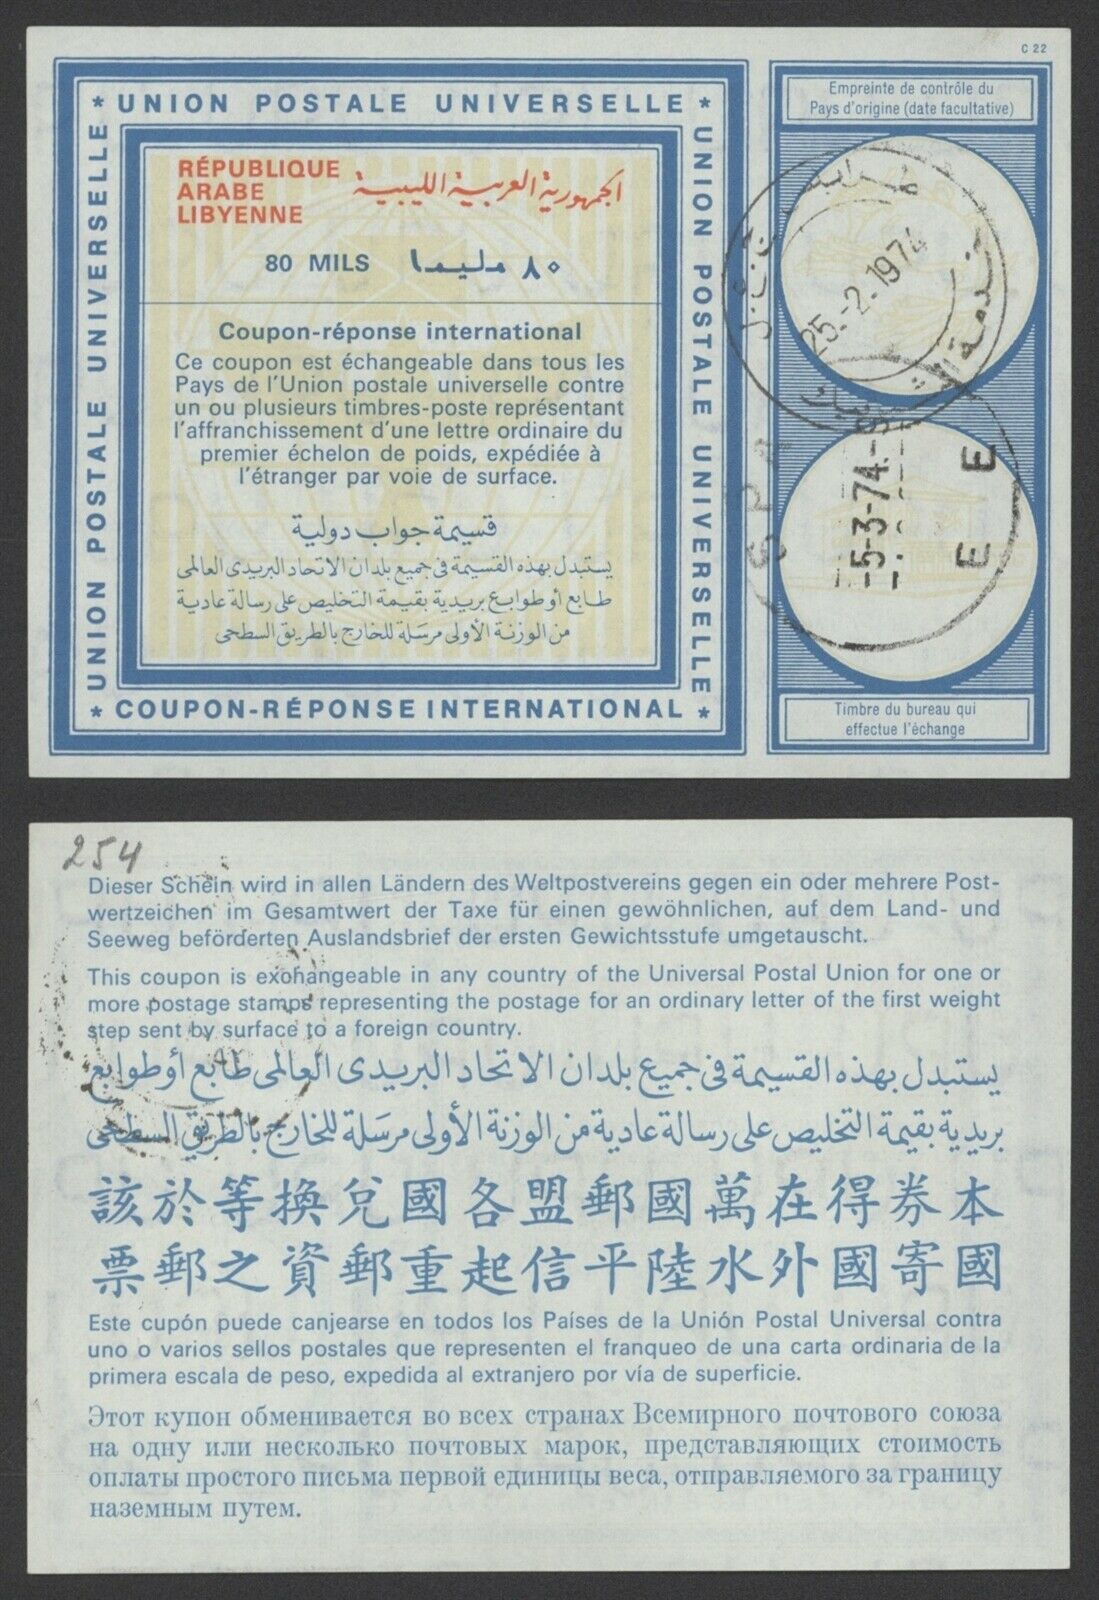 C 22
* UNION POSTALE UNIVERSELLE *
UNION POSTALE UNIVERSELLE
UNION POSTALE UNIVERSELLE
RÉPUBLIQUE
ARABE
LIBYENNE
الجمهورية العربية الليبية
80 MILS ٨٠ مليما
Coupon-réponse international
Ce coupon est échangeable dans tous les
Pays de l'Union postale universelle contre
un ou plusieurs timbres-poste représentant
l'affranchissement d'une lettre ordinaire du
premier échelon de poids, expédiée à
l'étranger par voie de surface.
قسيمة جواب دولية
يستبدل بهذه القسيمة فى جميع بلدان الاتحاد البريدى العالمى
طابع أو طوابع بريدية بقيمة التخليص على رسالة عادية
من الوزنة الأولى مرسلة للخارج بالطريق السطحى
* COUPON-RÉPONSE INTERNATIONAL *
Empreinte de contrôle du
Pays d'origine (date facultative)
25.-2.1974
-5-3-74.-
E E
Timbre du bureau qui
effectue l'échange
254
Dieser Schein wird in allen Ländern des Weltpostvereins gegen ein oder mehrere Post-
wertzeichen im Gesamtwert der Taxe für einen gewöhnlichen, auf dem Land- und
Seeweg beförderten Auslandsbrief der ersten Gewichtsstufe umgetauscht.
This coupon is exchangeable in any country of the Universal Postal Union for one or
more postage stamps representing the postage for an ordinary letter of the first weight
step sent by surface to a foreign country.
يستبدل بهذه القسيمة فى جميع بلدان الاتحاد البريدى العالمى طابع أو طوابع
بريدية بقيمة التخليص على رسالة عادية من الوزنة الأولى مرسلة للخارج بالطريق السطحى
該於等換兌國各盟郵國萬在得券本
票郵之資郵重起信平陸水外國寄國
Este cupón puede canjearse en todos los Países de la Unión Postal Universal contra
uno o varios sellos postales que representen el franqueo de una carta ordinaria de la
primera escala de peso, expedida al extranjero por vía de superficie.
Этот купон обменивается во всех странах Всемирного почтового союза
на одну или несколько почтовых марок, представляющих стоимость
оплаты простого письма первой единицы веса, отправляемого за границу
наземным путем.